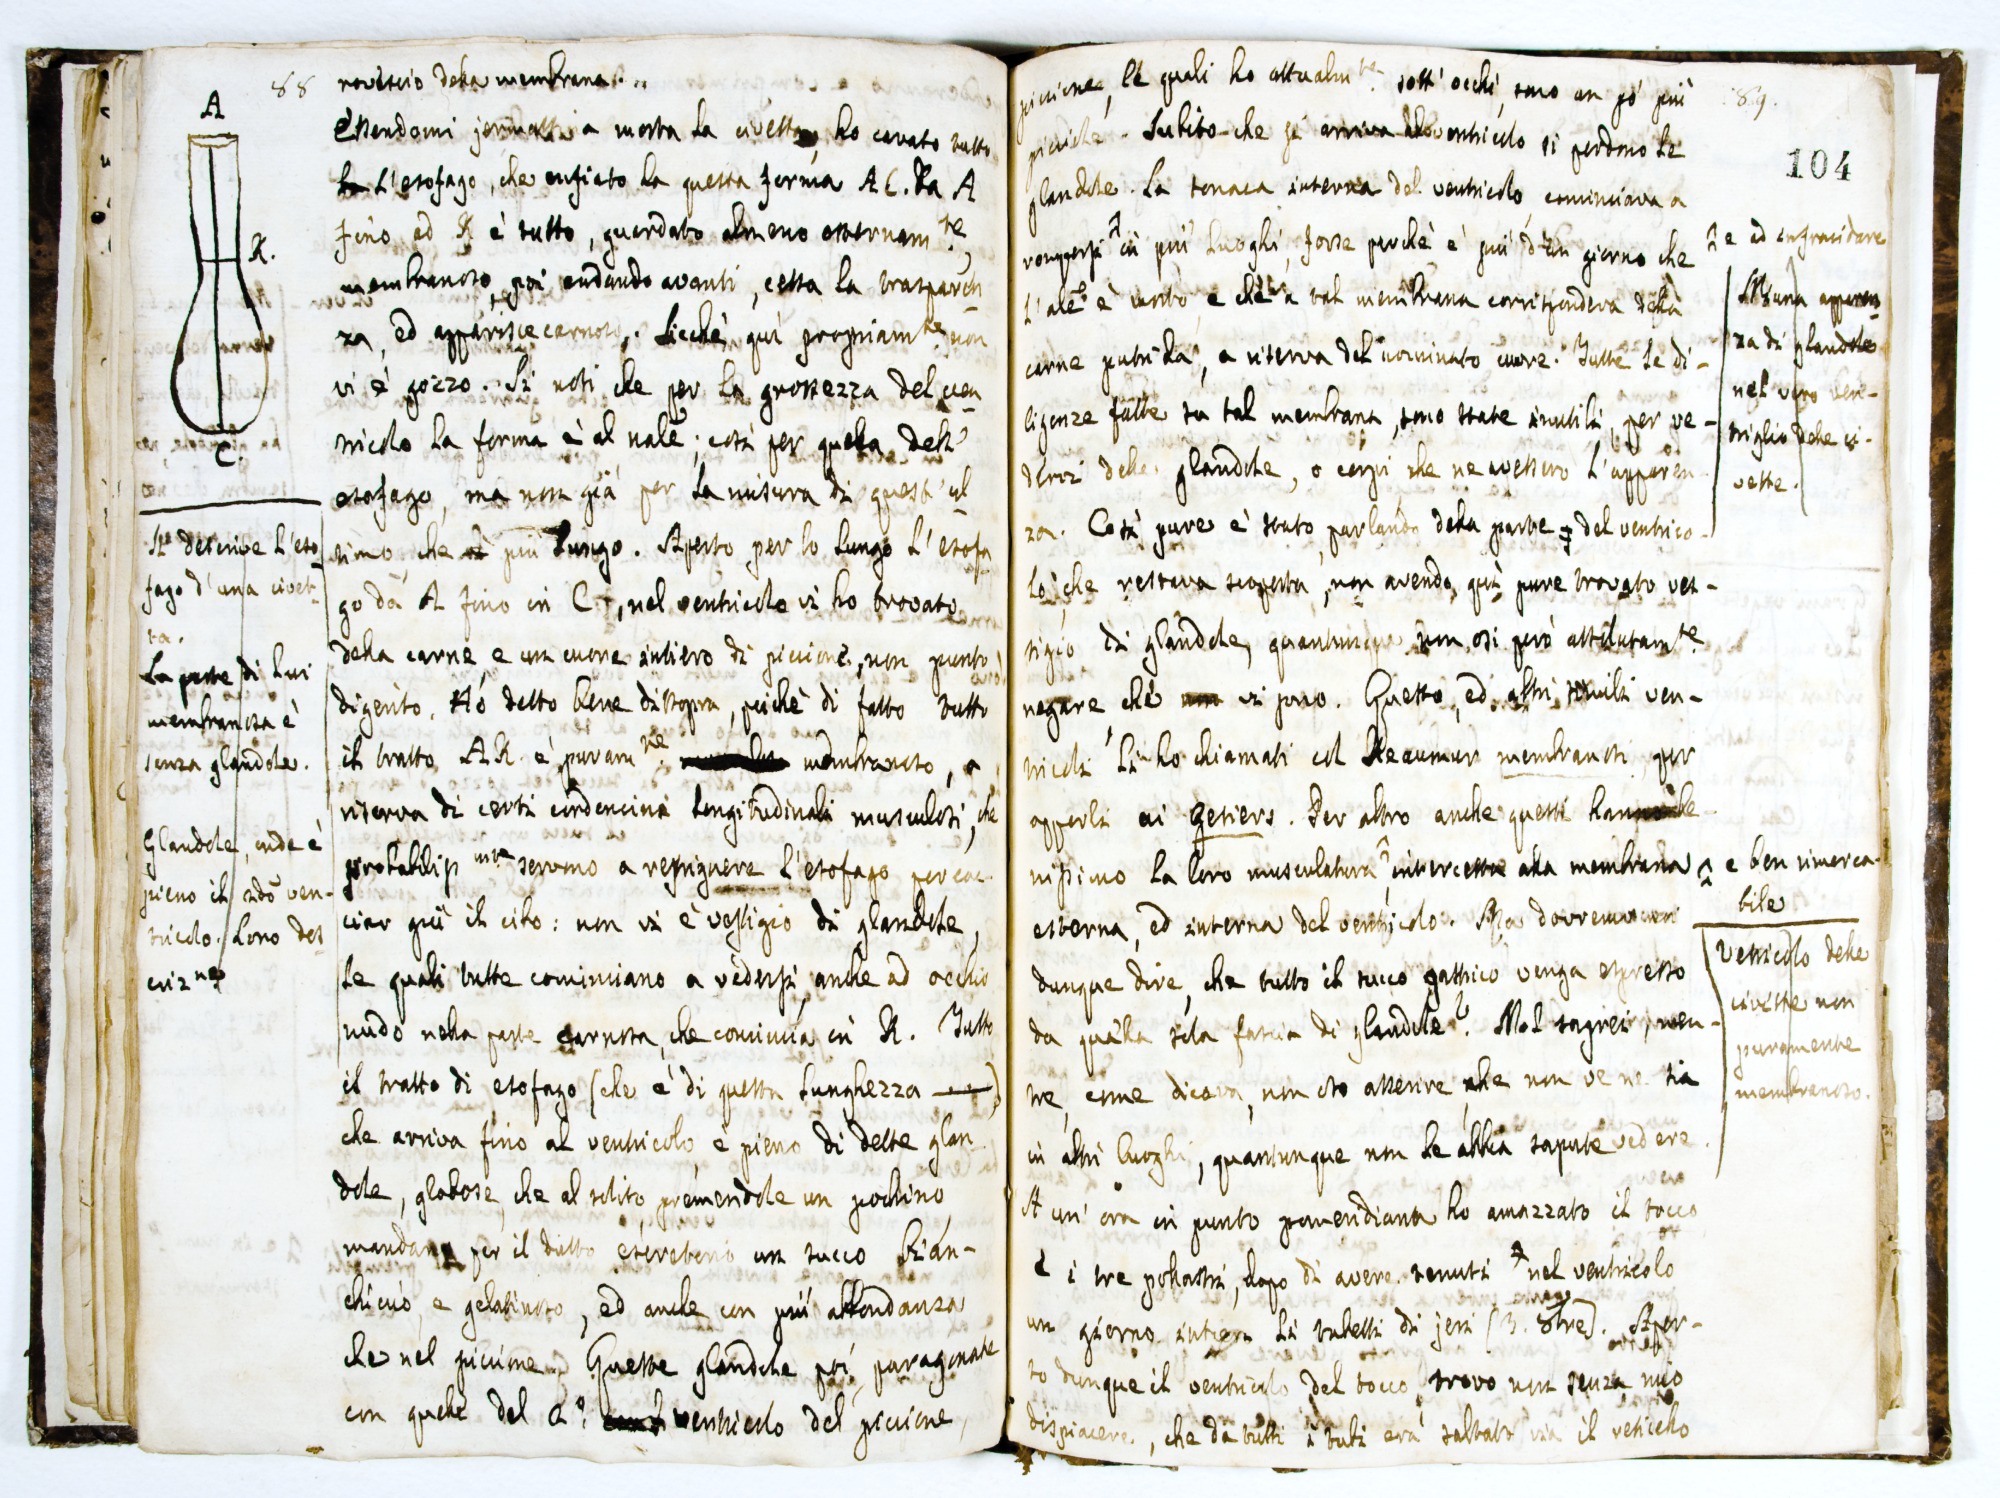 88
A
K.
C.
rovescio della membrana.
Essendomi jermattina morta la civetta, ho cavato tutto
l'esofago, che enfiato ha questa forma AC. Da A
fino ad K è tutto, guardato almeno esternam.te,
membranoso, poi andando avanti, cessa la trasparen
za, ed apparisce carnoso. Sicchè quì propriam.te non
vi è gozzo. Si noti che per la grossezza del ven
tricolo la forma è al nale; così per quella dell'
esofago, ma non già per la misura di quest'ul
timo che è più lungo. Aperto per lo lungo l'esofa
go da A fino in C, nel ventricolo vi ho trovato
della carne e un cuore intiero di piccione, non punto
digerito. Hó detto bene dissopra, poichè di fatto tutto
il tratto AK. è puram.te membranoso, a
riserva di certi cordoncini longitudinali muscolosi, che
probabiliss.mte servono a restriguere l'esofago per cac
ciar giù il cibo: non vi è vestigio di glandole,
le quali tutte cominciano a vedersi anche ad occhio
nudo nella parte carnosa, che comincia in K. Tutto
il tratto di esofago (che è di questa lunghezza —)
che arriva fino al ventricolo è pieno di dette glan
dole, globose, che al solito premendole un pochino
mandan per il dutto escretorio un succo bian-
chiccio e gelatinoso, ed anche con più abbondanza
che nel piccione. Queste glandole poi paragonate
con quelle del 2.o ventricolo del piccione,
Si descrive l'eso
fago d'una civet-
ta.
La parte di lui
membranosa è
senza glandole.
Glandole, onde è
pieno il 2do ven-
tricolo. Loro des
criz.ne
89.
104
piccione, le quali ho attualm.te sott'occhi, sono un pó più
picciole. Subito che si arriva al ventricolo si perdono le
glandole. La tonaca interna del ventricolo cominciava a
rompersi in più luoghi, forse perchè è più d'un giorno che
l'ale è morto e che a tal membrana corrispondeva della
carne putrida, a riserva del nominato cuore. Tutte le di-
ligenze fatte su tal membrana, sono state inutili, per ve-
dervi delle glandole, o corpi che ne avessero l'apparen
za. Così pure è stato, parlando della parte del ventrico-
lo, che restava scoperta, non avendo quì pure trovato ves-
tigio di glandole, quantunque non osi però assolutam.te
negare che vi sono. Questo, ed altri simili ven-
tricoli li ho chiamati col Reaumur membranosi per
opporli ai Gesiers. Per altro anche questi hanno be
nissimo la loro muscolatura intercetta alla membrana
esterna, ed interna del ventricolo. Ma dovremo noi
dunque dire, che tutto il succo gastrico venga espresso
da quella sola fascia di glandole? Nol saprei, men-
tre, come diceva, non oso asserire che non ve ne sia
in altri luoghi, quantunque non le abbia sapute vedere.
A un'ora in punto pomeridiana ho amazzato il tocco
e i tre pollastri, dopo di avere tenuti nel ventricolo
un giorno intiero li tubetti di jeri (3. 8bre). Aper-
to dunque il ventricolo del tocco, trovo non senza mio
dispiacere, che da tutti i tubi era saltato via il reticello
e ad infracidare
Niuna apparen
za di glandole
nel vero ven-
triglio delle ci-
vette.
e ben rimarca-
bile
Vetricolo delle
civette non
puramente
membranoso.